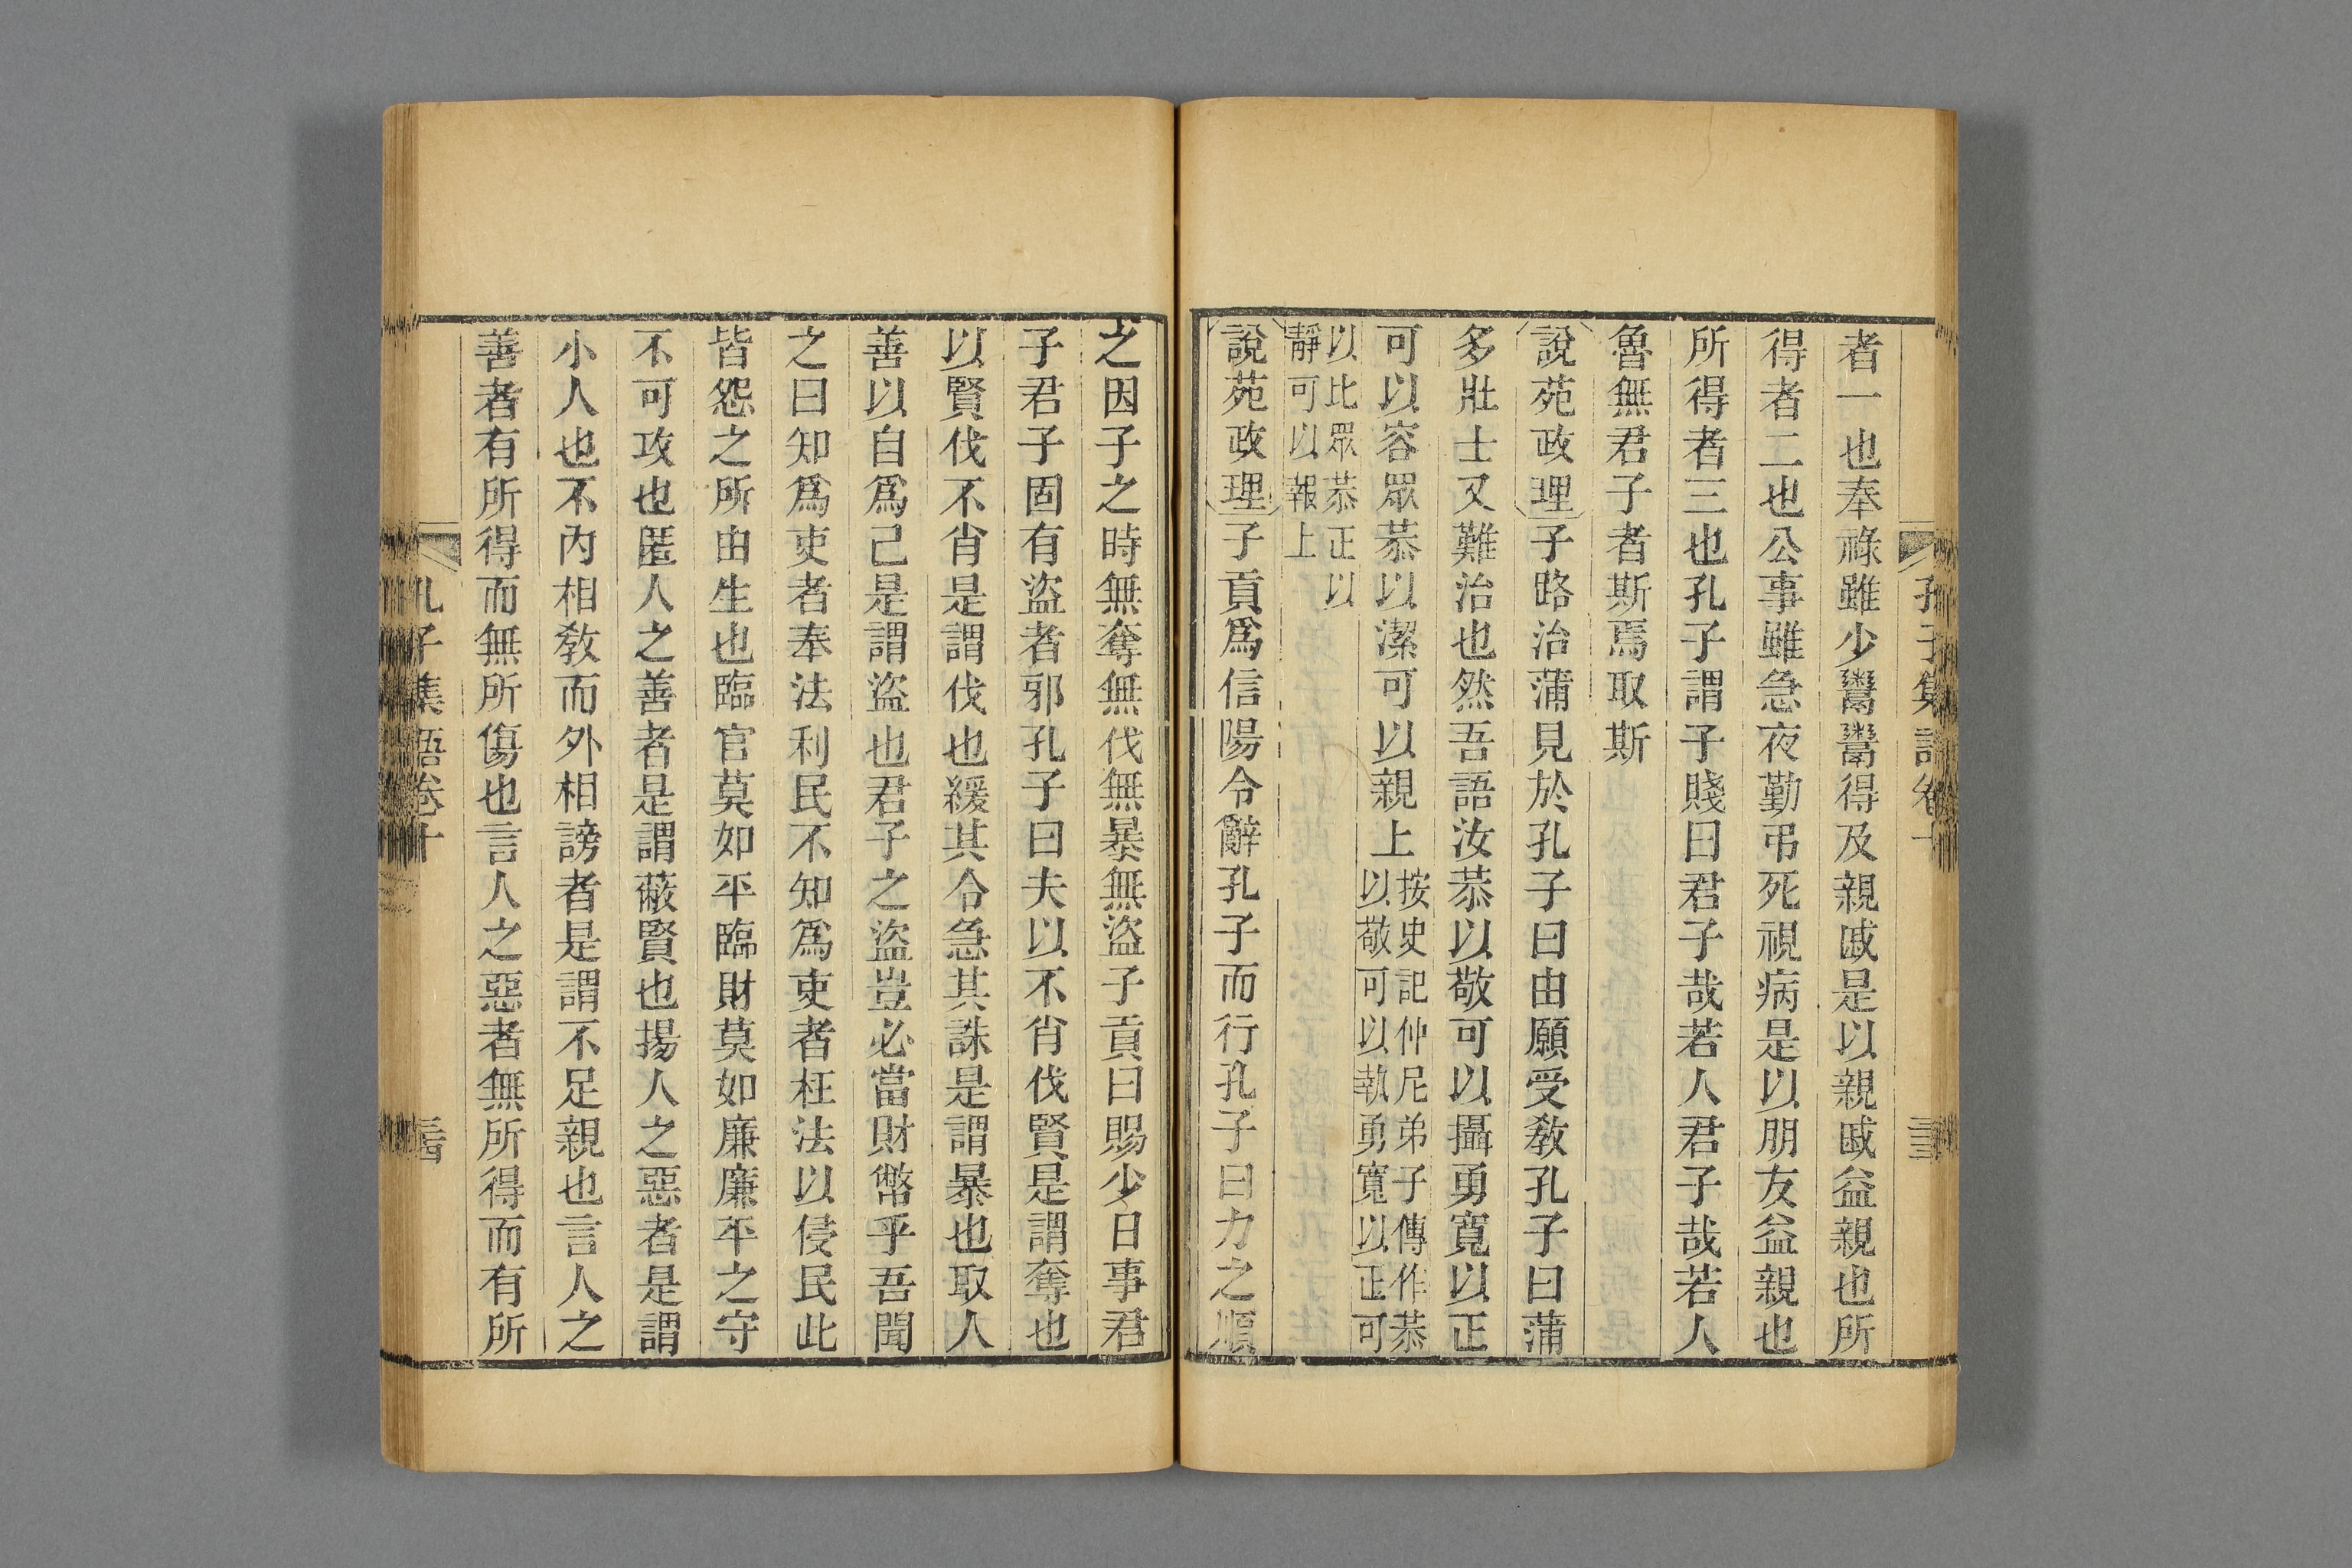 孔子集語卷十
者一也奉祿雖少鬻鬻得及親戚是以親戚益親也所
得者二也公事雖急夜勤弔死視病是以朋友益親也
所得者三也孔子謂子賤曰君子哉若人君子哉若人
魯無君子者斯焉取斯
說苑政理子路治蒲見於孔子曰由願受敎孔子曰蒲
多壯士又難治也然吾語汝恭以敬可以攝勇寬以正
可以容眾恭以潔可以親上按史記仲尼弟子傳作恭以敬可以執勇寬以正可
以比眾恭正以靜可以報上
說苑政理子貢爲信陽令辭孔子而行孔子曰力之順
之因子之時無奪無伐無暴無盜子貢曰賜少日事君
子君子固有盜者邪孔子曰夫以不肖伐賢是謂奪也
以賢伐不肖是謂伐也緩其令急其誅是謂暴也取人
善以自爲己是謂盜也君子之盜豈必當財幣乎吾聞
之曰知爲吏者奉法利民不知爲吏者枉法以侵民此
皆怨之所由生也臨官莫如平臨財莫如廉廉平之守
不可攻也匿人之善者是謂蔽賢也揚人之惡者是謂
小人也不內相敎而外相謗者是謂不足親也言人之
善者有所得而無所傷也言人之惡者無所得而有所
孔子集語卷十